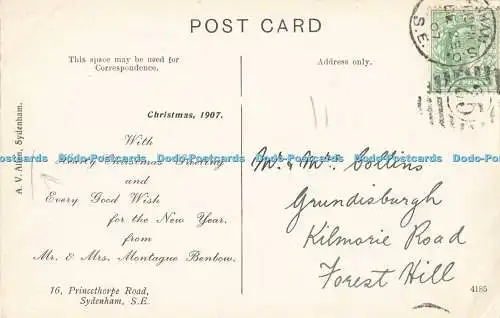 POST CARD
This space may be used for
Correspondence.
Address only.
Christmas, 1907.
With
Hearty Christmas Greeting
and
Every Good Wish
for the New Year.
from
Mr. & Mrs. Montague Benbow.
16, Princethorpe Road,
Sydenham, S.E.
A. V. Allen, Sydenham.
Mr. & Mrs. Collins
Grundisburgh
Kilmorie Road
Forest Hill
4185
S.E.
07
Dodo-Postcards Dodo-Postcards Dodo-Postcards Dodo-Postcards Dodo-Postcards